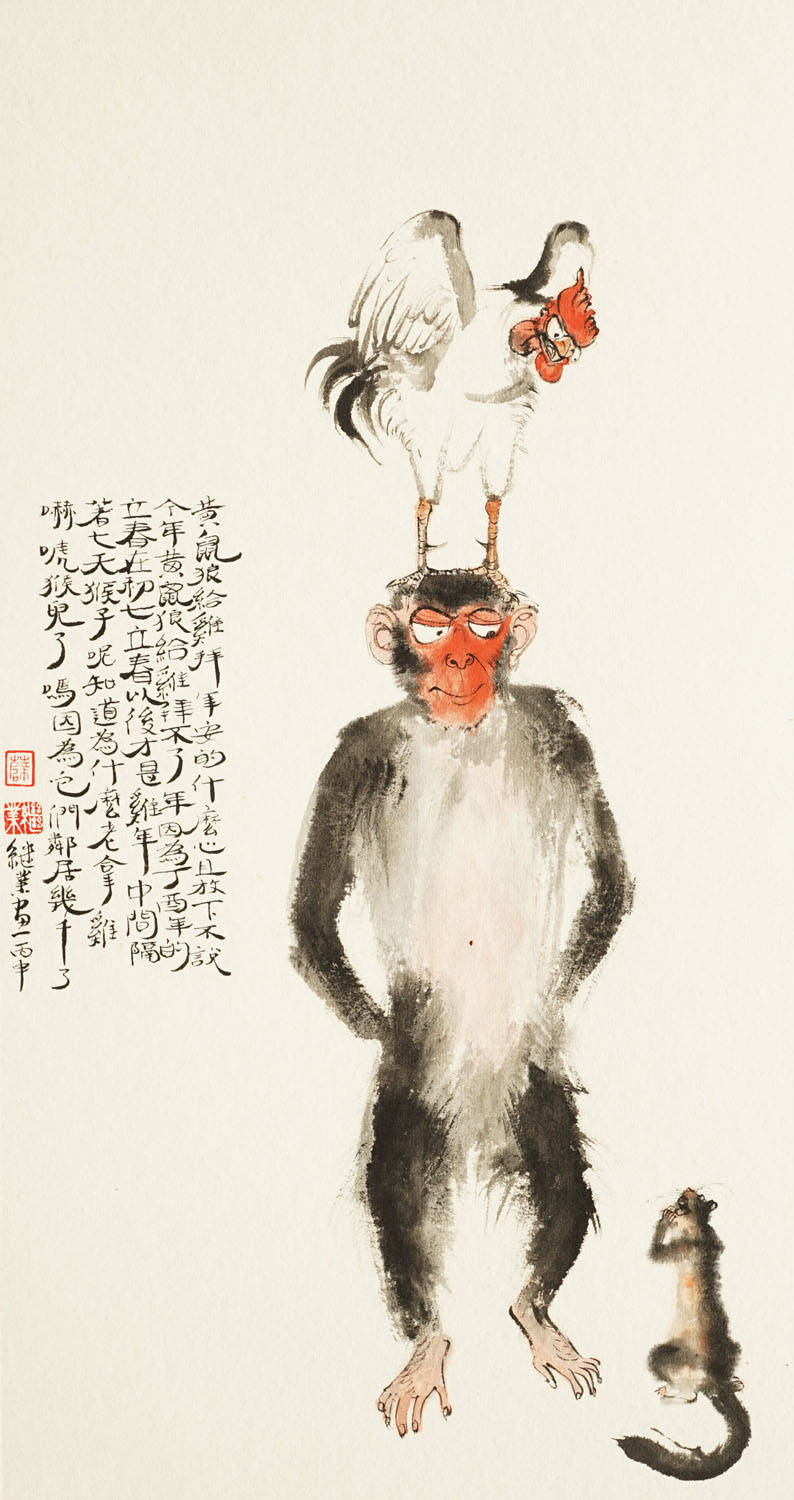 黄鼠狼給雞拜年安的什麼心且放下不説
今年黄鼠狼給雞拜不了年因為丁酉年的
立春在初七立春以後才是雞年中間隔
著七天猴子呢知道為什麼老拿雞
嚇唬猴兒了嗎因為它們鄰居幾千了
薛
继業
继業畫丙申